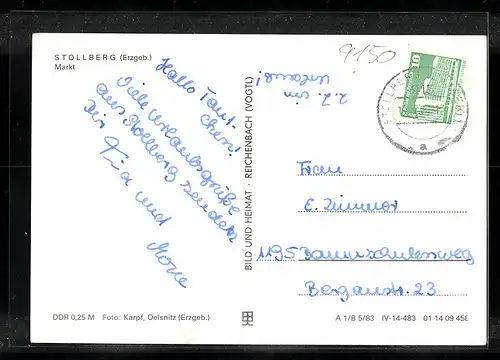 STOLLBERG (Erzgeb.)
Markt
Hallo Tant-
chen!
Viele Urlaubsgrüße
aus Stollberg senden
Dir
und
2. Z. im
Urlaub!
BILD UND HEIMAT · REICHENBACH (VOGTL)
9150
10
STOLLBERG
a
Frau
E. Zimmer
1195 Baumschulenweg
Bergaustr. 23
DDR 0,25 M Foto: Karpf, Oelsnitz (Erzgeb.)
A 1/B 5/83 IV-14-483 01 14 09 458